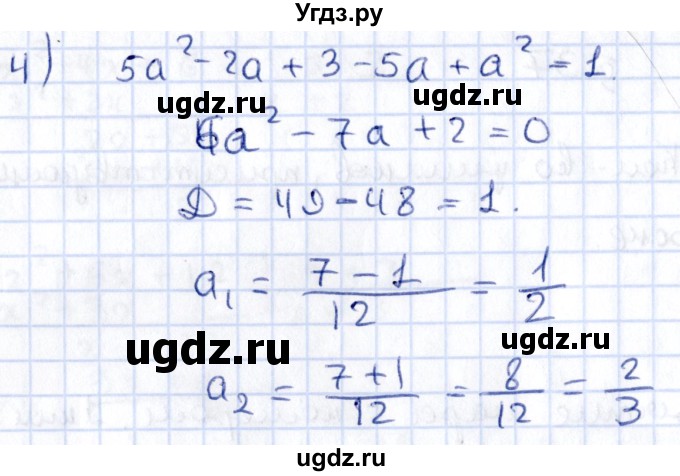 Угдз.ру
4) 5a² - 2a + 3 - 5a + a² = 1.
ugdz.ru ugdz.ru
6a² - 7a + 2 = 0
ugdz.ru ugdz.ru
Д = 49 - 48 = 1.
a₁ = (7 - 1)/12 = 1/2
ugdz.ru ugdz.ru
a₂ = (7 + 1)/12 = 8/12 = 2/3
ugdz.ru ugdz.ru